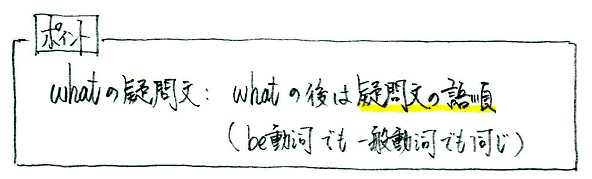 ポイント
whatの疑問文: whatの後は疑問文の語順
(be動詞でも一般動詞でも同じ)